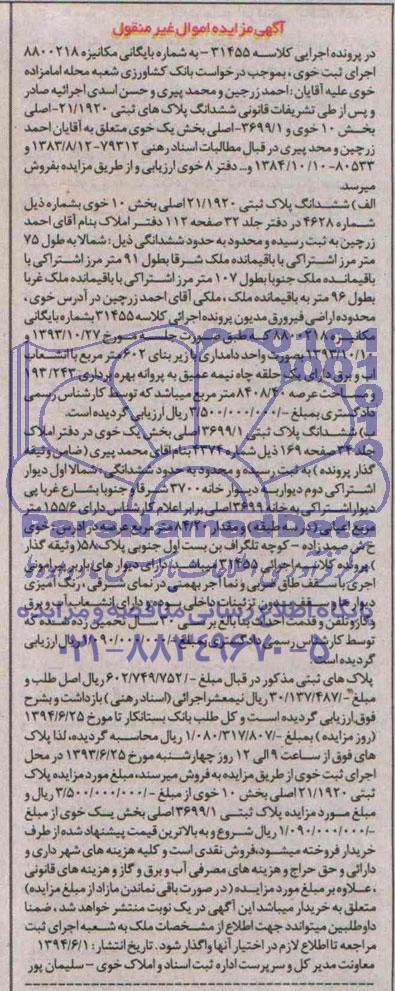 آگهی مزایده اموال غیر منقول
در پرونده اجرایی کلاسه ۳۱۴۵۵- به شماره بایگانی مکانیزه ۸۸۰۰۲۱۸
اجرای ثبت خوی، بموجب درخواست بانک کشاورزی شعبه محله امامزاده
خوی علیه آقایان: احمد زرجین و محمد پیری و حسن اسدی اجرائیه صادر
و پس از طی تشریفات قانونی ششدانگ پلاک های ثبتی ۲۱/۱۹۲۰-اصلی
بخش ۱۰ خوی و ۳۶۹۹/۱-اصلی بخش یک خوی متعلق به آقایان احمد
زرچین و محد پیری در قبال مطالبات اسناد رهنی ۷۹۳۱۲-۱۳۸۳/۸/۱۲ و
۸۰۵۳۳-۱۳۸۴/۱۰/۱۰ و... دفتر ۸ خوی ارزیابی و از طریق مزایده بفروش
میرسد.
الف) ششدانگ پلاک ثبتی ۲۱/۱۹۲۰ اصلی بخش ۱۰ خوی بشماره ذیل
شماره ۴۶۲۸ در دفتر جلد ۳۲ صفحه ۱۱۲ دفتر املاک بنام آقای احمد
زرچین به ثبت رسیده و محدود به حدود ششدانگی ذیل: شمالا به طول ۷۵
متر مرز اشتراکی با باقیمانده ملک شرقا بطول ۹۱ متر مرز اشتراکی با
باقیمانده ملک جنوبا بطول ۱۰۷ متر مرز اشتراکی با باقیمانده ملک غربا
بطول ۹۶ متر به باقیمانده ملک، ملکی آقای احمد زرچین در آدرس خوی،
محدوده اراضی فیرورق مدیون پرونده اجرائی کلاسه ۳۱۴۵۵ بشماره بایگانی
مکانیزه ۸۸۰۰۲۱۸ که طبق صورت جلسه مورخ ۱۳۹۳/۱۰/۲۷ و
۱۳۹۳/۱۰/۱۰ بصورت واحد دامداری با زیر بنای ۶۰۲ متر مربع با انشعاب
آب و برق دارای یک حلقه چاه نیمه عمیق به پروانه بهره برداری ۱۹۳/۲۴۳
و مساحت عرصه ۸۴۰۸/۴۰ متر مربع میباشد که توسط کارشناس رسمی
دادگستری بمبلغ -/۳/۵۰۰/۰۰۰/۰۰۰ ریال ارزیابی گردیده است.
ب) ششدانگ پلاک ثبتی ۳۶۹۹/۱ اصلی بخش یک خوی در دفتر املاک
جلد ۳۴ صفحه ۱۶۹ ذیل شماره ۴۳۷۴ بنام آقای محمد پیری (ضامن وثیقه
گذار پرونده) به ثبت رسیده و محدود به حدود ششدانگی: شمالا اول دیوار
اشتراکی دوم دیواریه دیوار خانه ۳۷۰۰ شرقا و جنوبا بشارع غربا پی
دیوار اشتراکی به خانه ۳۶۹۹ اصلی برابر اعلام کارشناس دارای ۱۵۵/۶ متر
مربع اعیانی (در سه طبقه) و مقدار ۸۴/۲۰ متر مربع عرصه در آدرس خوی
خ ش صمدزاده - کوچه تلگراف بن بست اول جنوبی پلاک ۵۸ (وثیقه گذار
) پرونده کلاسه اجرائی ۳۱۴۵۵ میباشد. دارای دیوار های باربر پیرامونی
آجری با سقف طاق ضربی و نما آجر بهمنی در نمای مشرفی، رنگ آمیزی
دیوار ها و سقف بدون تزئینات داخلی بوده و دارای انشعاب آب و برق
و گاز و تلفن و قدمت احداث بنا بالغ بر حدود ۳۰ سال تخمین زده شده که
توسط کارشناس رسمی دادگستری بمبلغ -/۱/۰۹۰/۰۰۰/۰۰۰ ریال ارزیابی
گردیده است.
پلاک های ثبتی مذکور در قبال مبلغ -/۶۰۲/۷۴۹/۷۵۲ ریال اصل طلب و
مبلغ -/۳۰/۱۳۷/۴۸۷ ریال نیمعشر اجرائی (اسناد رهنی) بازداشت و بشرح
فوق ارزیابی گردیده است و کل طلب بانک بستانکار تا مورخ ۱۳۹۴/۶/۲۵
(روز مزایده) بمبلغ -/۱/۰۸۰/۳۱۷/۸۰۷ ریال محاسبه گردیده، لذا پلاک
های فوق از ساعت ۹ الی ۱۲ روز چهارشنبه مورخ ۱۳۹۳/۶/۲۵ در محل
اجرای ثبت خوی از طریق مزایده به فروش میرسند، مبلغ مورد مزایده پلاک
ثبتی ۲۱/۱۹۲۰ اصلی بخش ۱۰ خوی از مبلغ -/۳/۵۰۰/۰۰۰/۰۰۰ ریال و
مبلغ مورد مزایده پلاک ثبتی ۳۶۹۹/۱ اصلی بخش یک خوی از مبلغ
-/۱/۰۹۰/۰۰۰/۰۰۰ ریال شروع و به بالاترین قیمت پیشنهاد شده از طرف
خریدار فروخته میشود، فروش نقدی است و کلیه هزینه های شهرداری و
دارائی و حق حراج و هزینه های مصرفی آب و برق و گاز و هزینه های قانونی
، علاوه بر مبلغ مورد مزایده (در صورت باقی نماندن مازاد از مبلغ مزایده)
متعلق به خریدار میباشد این آگهی در یک نوبت منتشر خواهد شد، ضمنا
داوطلبین میتوانند جهت اطلاع از مشخصات ملک به شعبه اجرای ثبت
مراجعه تا اطلاع لازم در اختیار آنها واگذار شود. تاریخ انتشار: ۱۳۹۴/۶/۱
معاونت مدیر کل و سرپرست اداره ثبت اسناد و املاک خوی - سلیمان پور
ParsNamadData
پایگاه اطلاع رسانی مناقصه و مزایده
۰۲۱-۸۸۳۴۹۶۷۰-۵